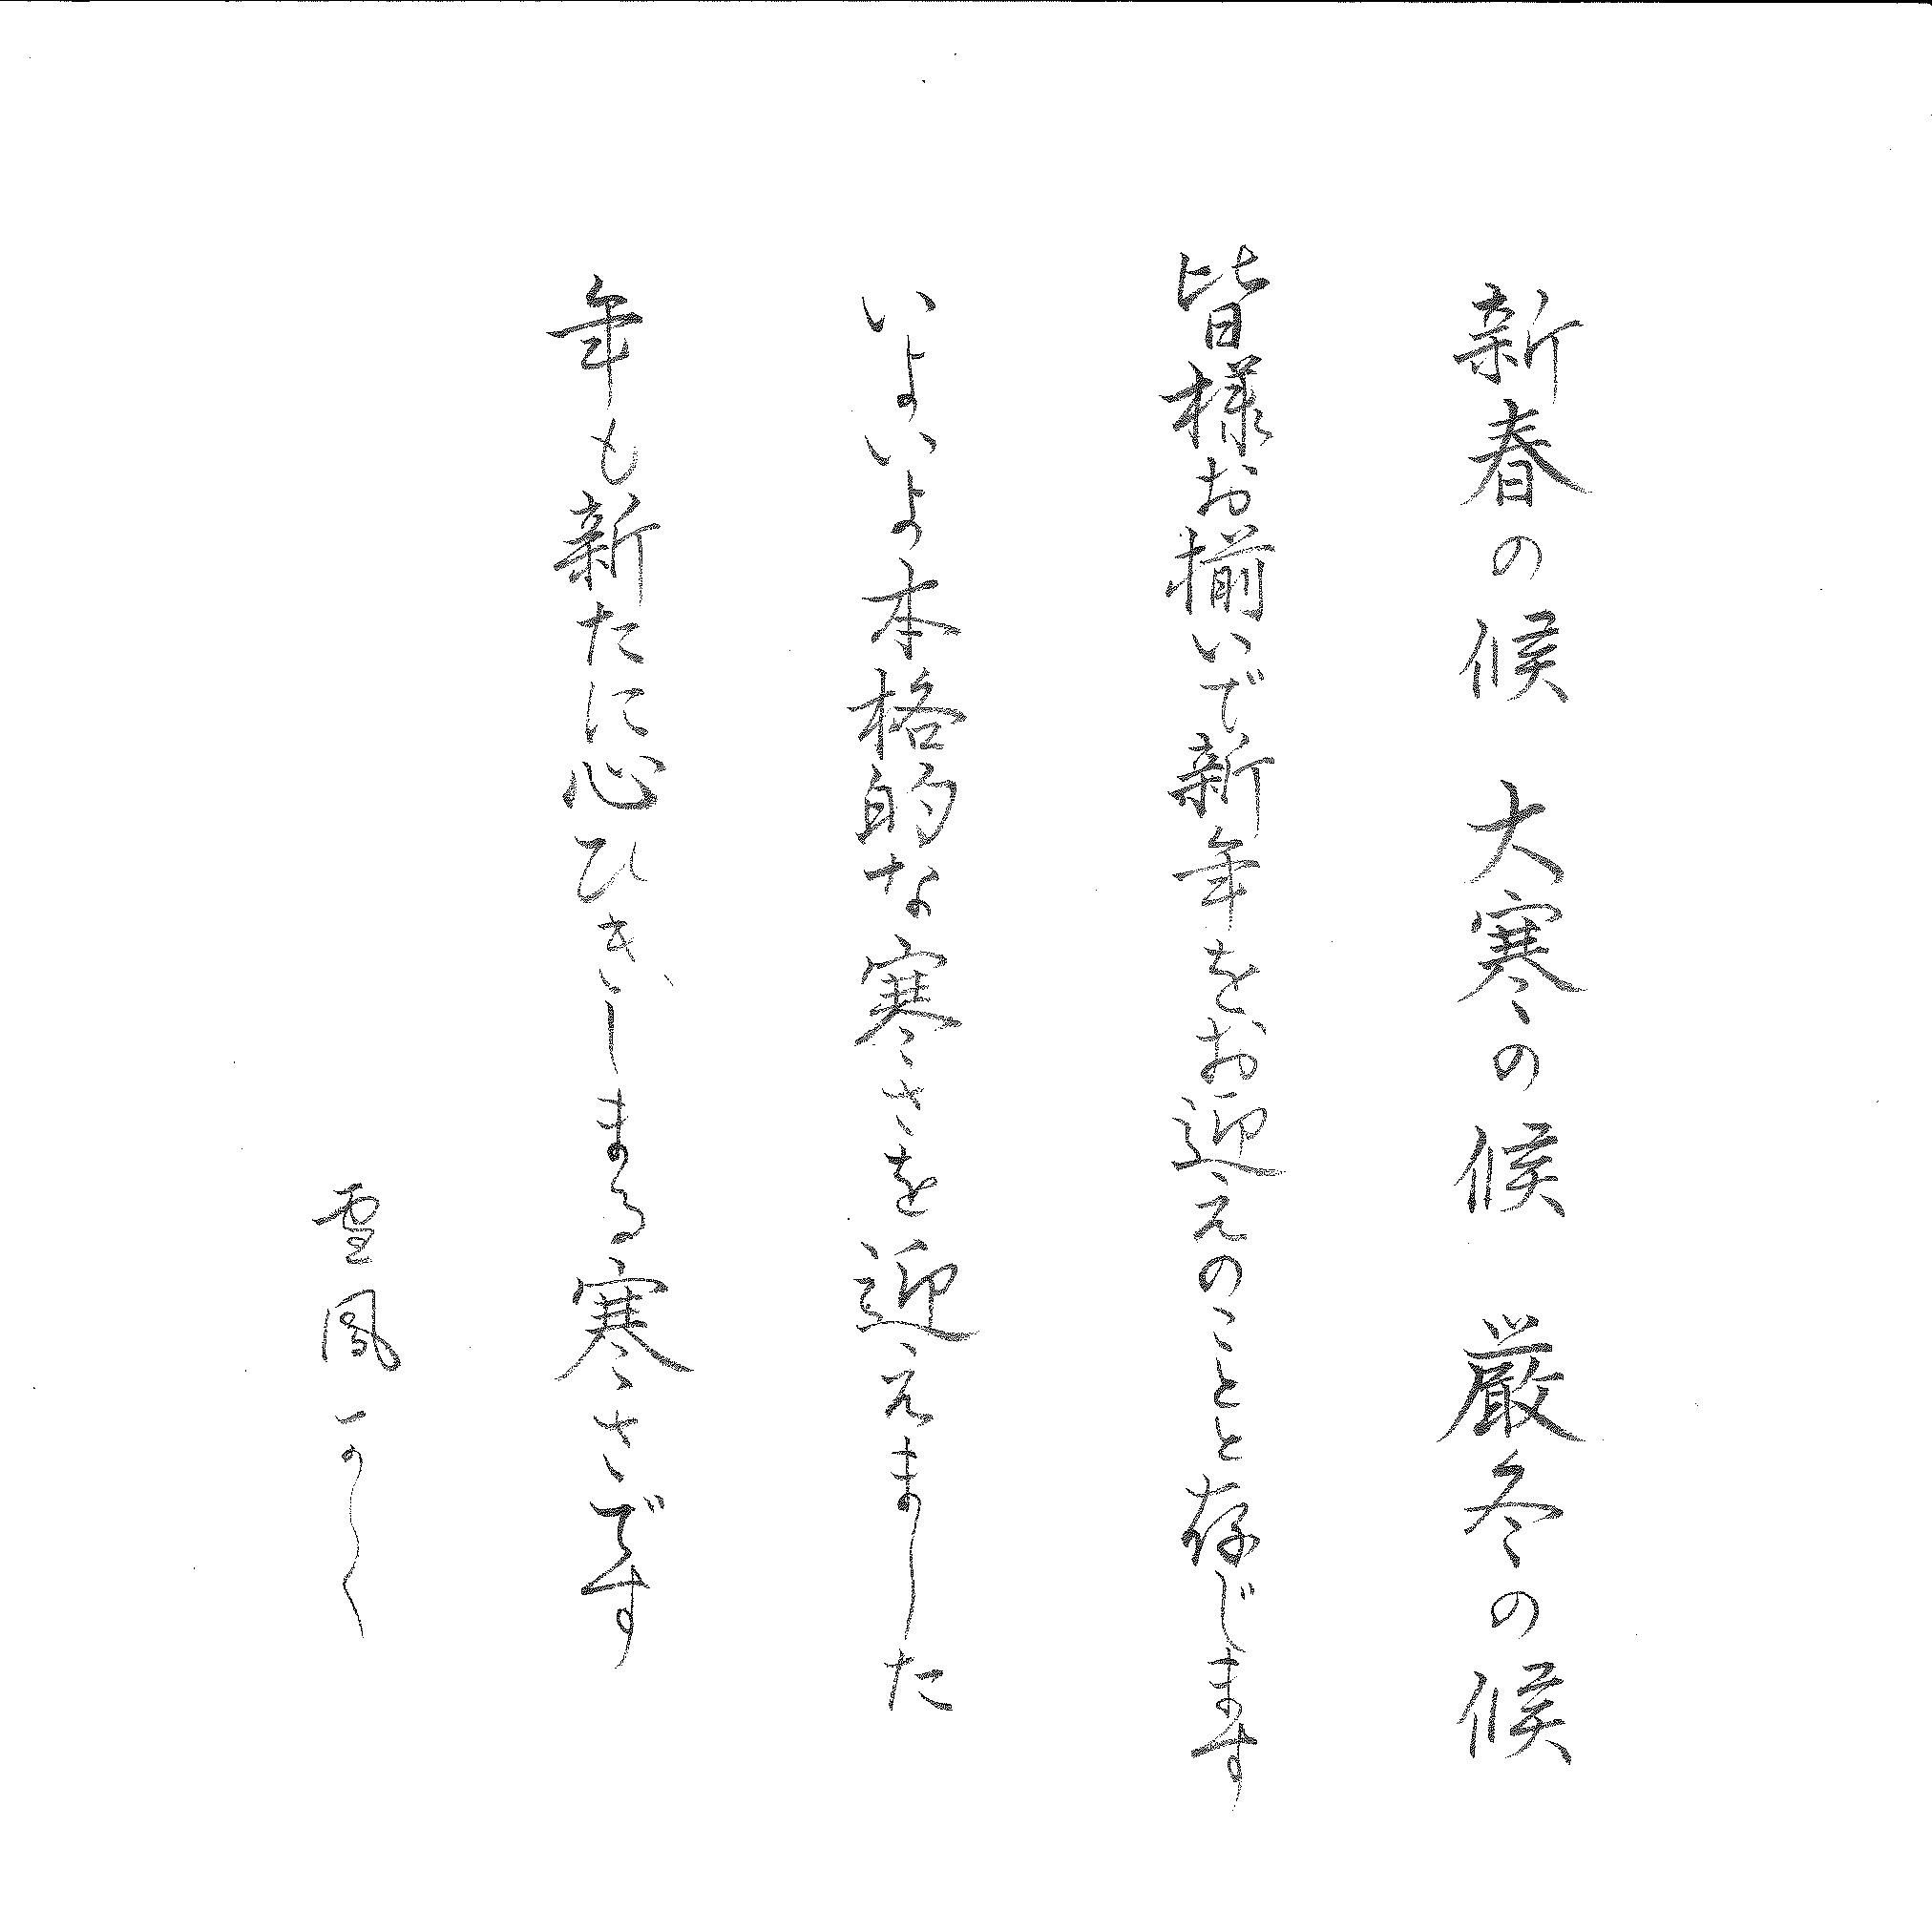 新春の候　大寒の候　厳冬の候
皆様お揃いで新年をお迎えのことと存じます
いよいよ本格的な寒さを迎えました
年も新たに心ひきしまる寒さです
雪鳳かく